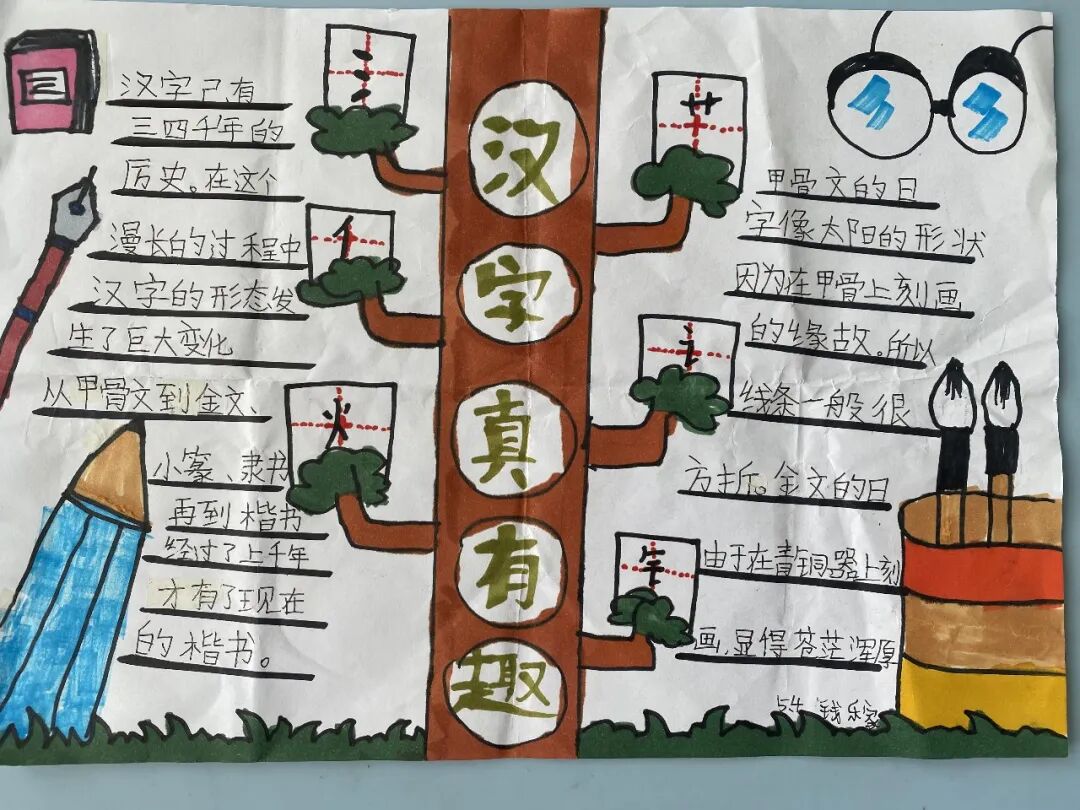 三
汉字真有趣
汉字已有
三四千年的
厉史。在这个
漫长的过程中
汉字的形态发
生了巨大变化
从甲骨文到金文、
小篆、隶书
再到楷书
经过了上千年
才有了现在
的楷书。
氵
亻
火
艹
讠
牜
甲骨文的日
字像太阳的形状
因为在甲骨上刻画
的缘故。所以
线条一般很
方折。金文的日
由于在青铜器上刻
画,显得苍茫浑厚
54 钱乐